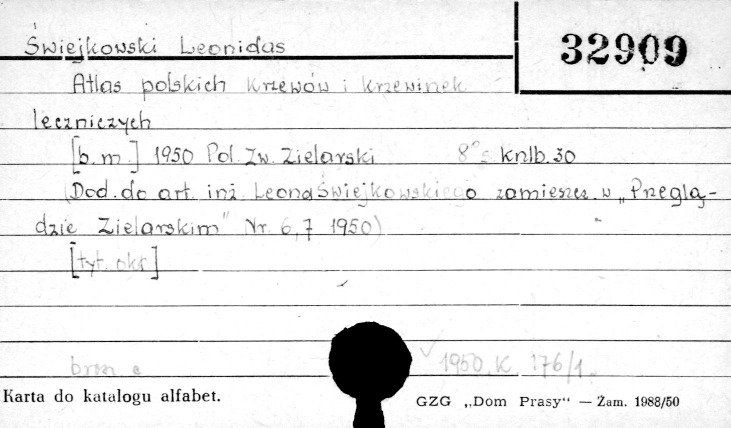 Świejkowski Leonidas
32909
Atlas polskich krzewów i krzewinek
leczniczych
[b.m.] 1950 Pol. Zw. Zielarski 8° s. knlb. 30
(Dod. do art. inż. Leona Świejkowskiego zamieszcz. w „Przeglą-
dzie Zielarskim" Nr. 6,7 1950)
[tyt. okł.]
1950. K. 176/1.
Karta do katalogu alfabet.
GZG „Dom Prasy" — Zam. 1988/50